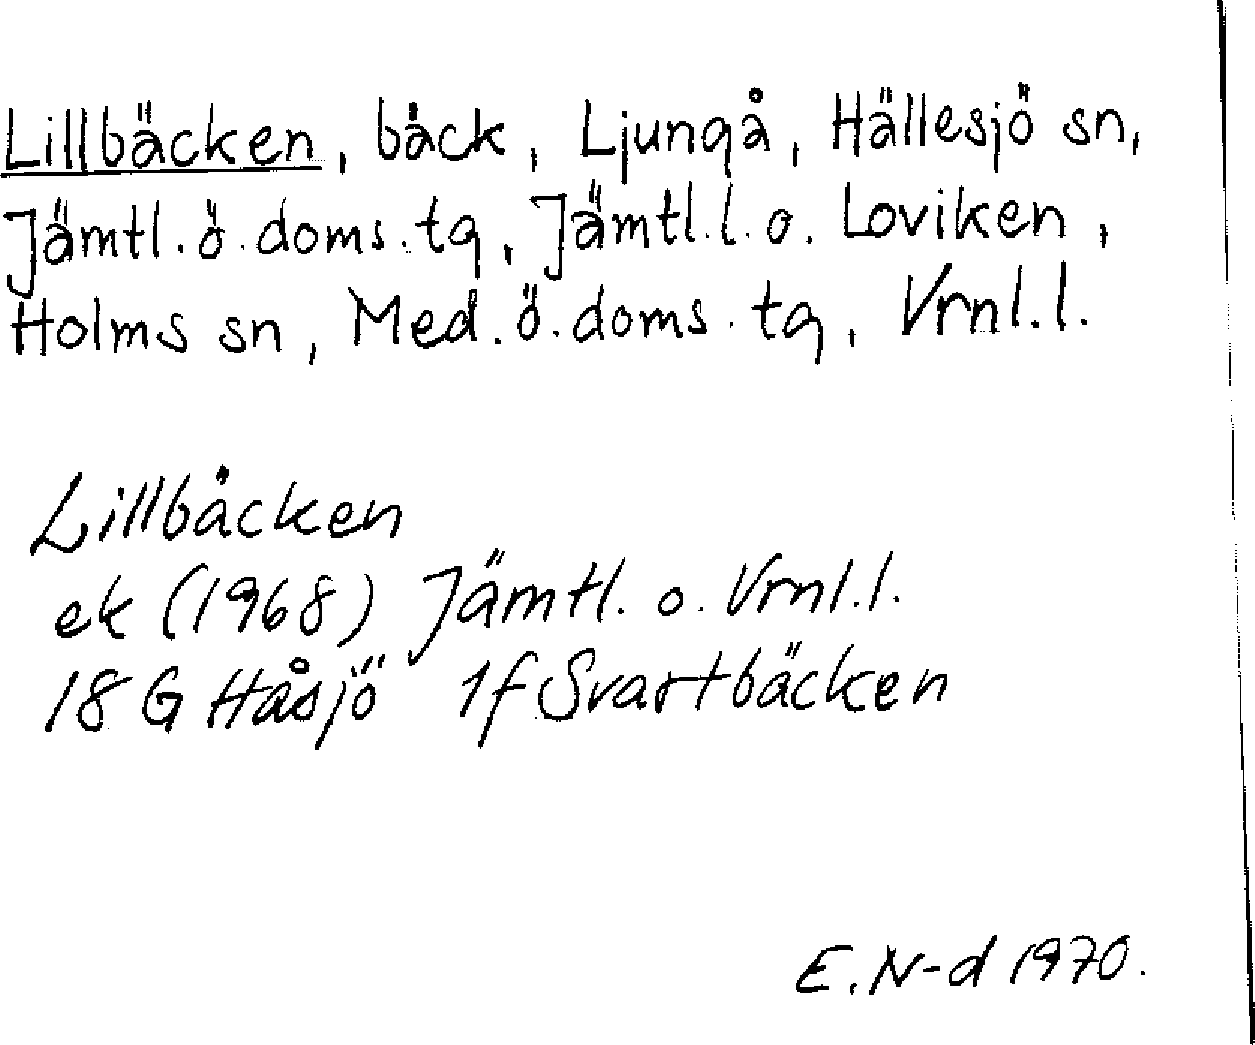 Lillbäcken, bäck, Ljungå, Hällesjö sn,
Jämtl. ö. doms. tg, Jämtl. l. o. Loviken,
Holms sn, Med. ö. doms. tg, Vrnl. l.
Lillbäcken
ek (1968) Jämtl. o. Vrnl. l.
18 G Håsjö 1f Svartbäcken
E. N-d 1970.